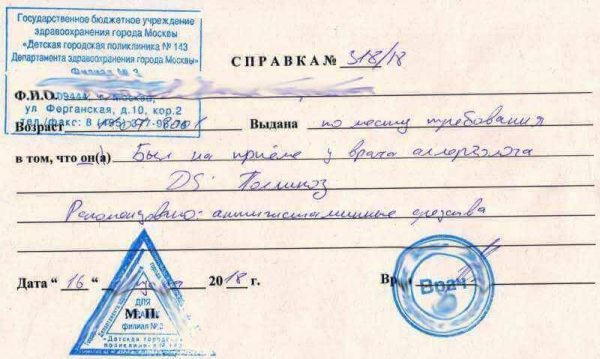 Государственное бюджетное учреждение
здравоохранения города Москвы
«Детская городская поликлиника № 143
Департамента здравоохранения города Москвы»
Филиал № 3
СПРАВКА № 318/18
Ф.И.О.
109444, г. Москва,
ул. Ферганская, д.10, кор.2
тел./факс: 8 (495)
Возраст Выдана по месту требования
в том, что он(а) Был на приёме у врача аллерголога
DS: Поллиноз
Рекомендовано: антигистаминные средства
Дата “ 16 “ 2018 г. Врач
Врач
ДЛЯ
М.П.
филиал №3
«Детская городская
поликлиника № 143